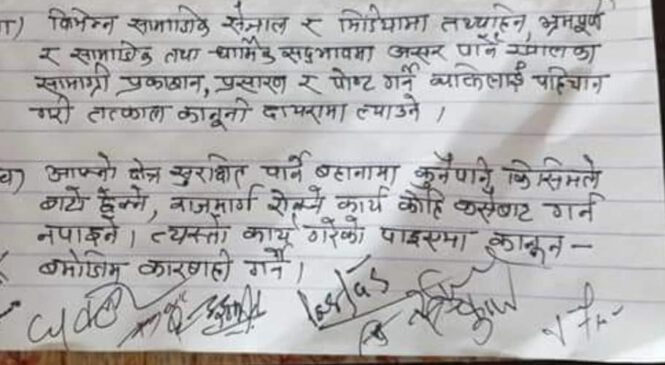 ग) विभिन्न सामाजिक संजाल र मिडियामा तथ्यहिन, भ्रमपूर्ण
र सामाजिक तथा धार्मिक सद्भावमा असर पार्ने खालका
सामाग्री प्रकाशन, प्रसारण र पोष्ट गर्ने व्यक्तिलाई पहिचान
गरी तत्काल कानूनी दायरामा ल्याउने ।
घ) आफ्नो क्षेत्र सुरक्षित पार्ने बहानामा कुनैपनि किसिमले
बाटो छेक्ने, राजमार्ग रोक्ने कार्य कोहि कसैबाट गर्न
नपाइने । त्यस्तो कार्य गरेको पाइएमा कानून -
बमोजिम कारबाही गर्ने ।